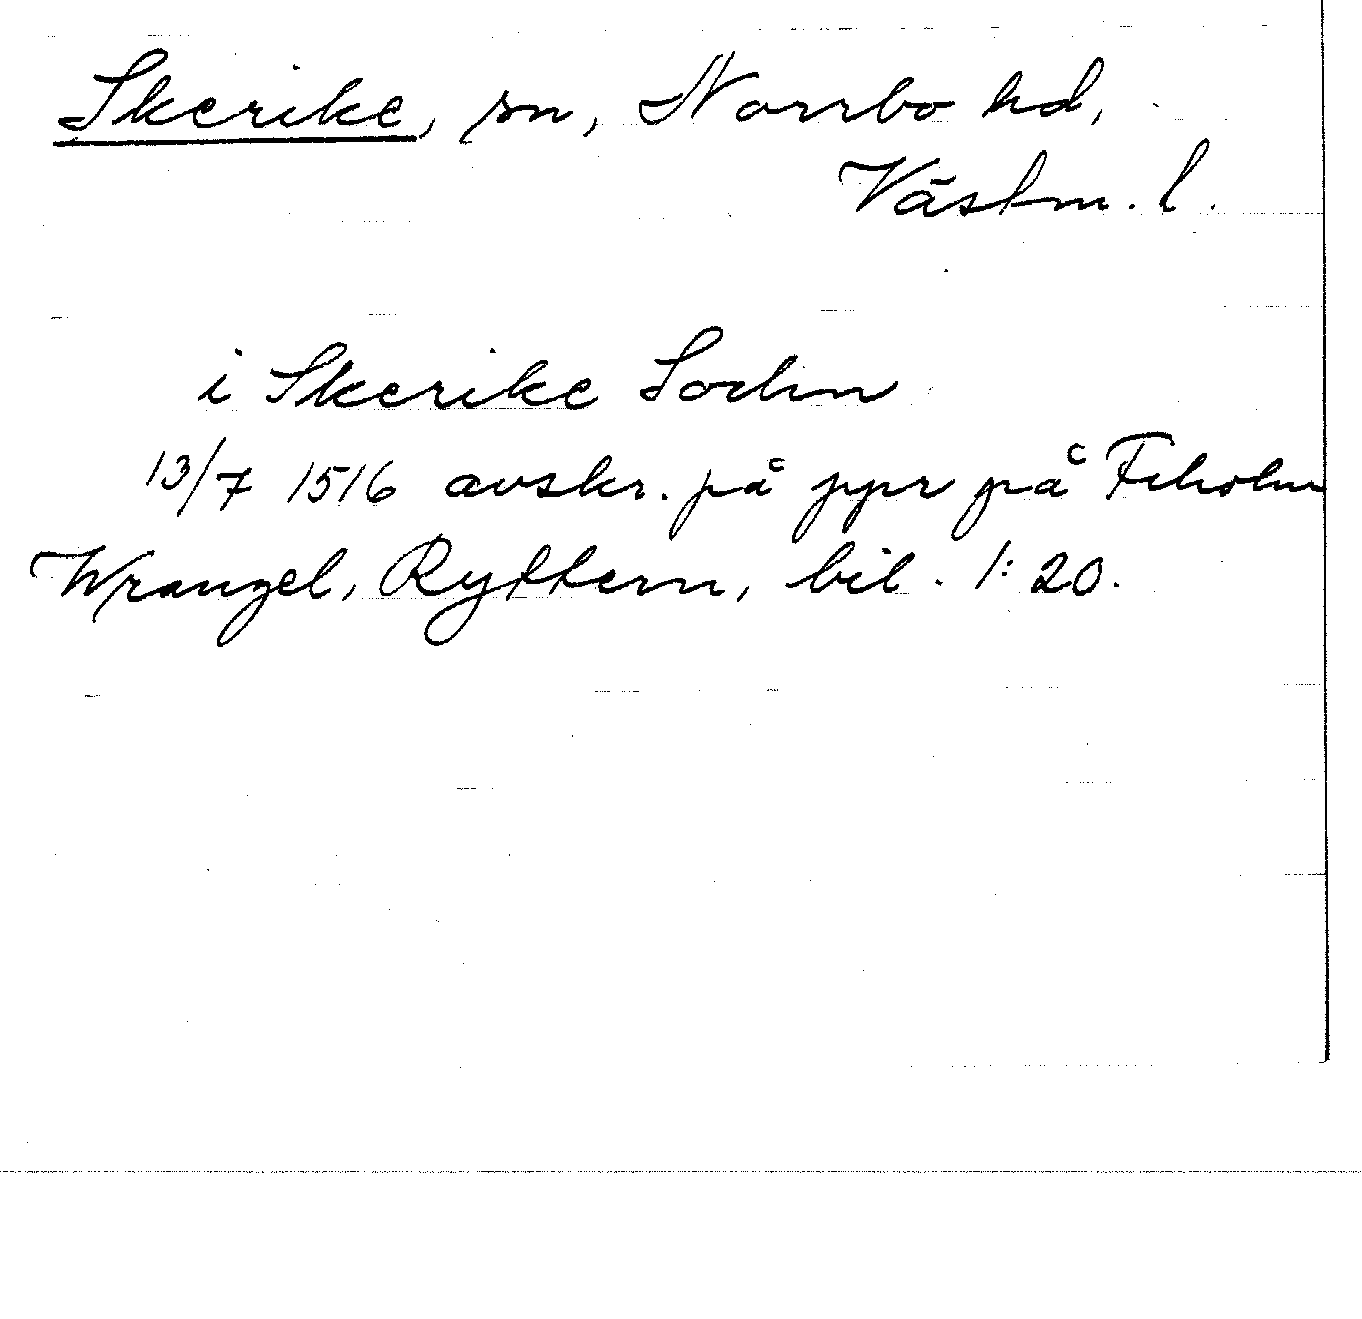 Skerike, sn, Norrbo hd,
Västm. l.
i Skerike Sochn
13/7 1516 avskr. på ppr på Fiholm
Wrangel, Ryttern, bil. 1:20.